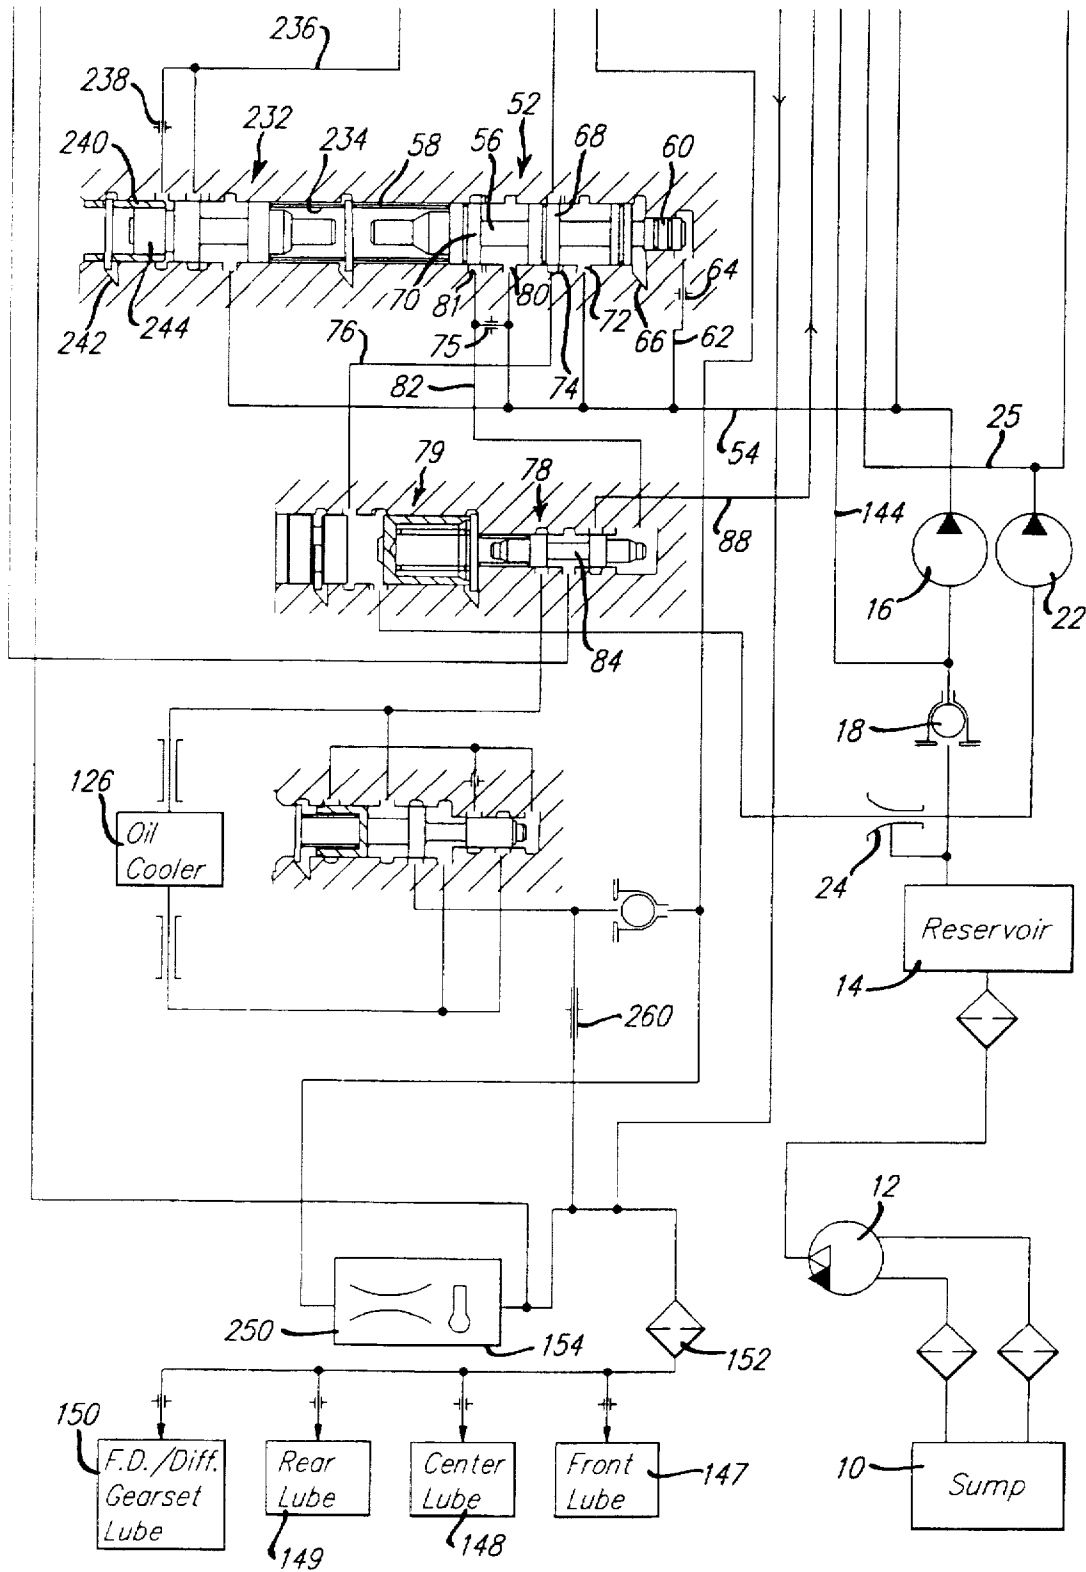 236
238
232
52
240
234
58
56
68
60
64
70
81
80
72
66
62
242
244
76
75
74
82
54
25
79
78
88
144
16
22
84
18
126
Oil
Cooler
24
Reservoir
14
260
12
250
154
152
150
F.D./Diff.
Gearset
Lube
Rear
Lube
149
Center
Lube
148
Front
Lube
147
10
Sump